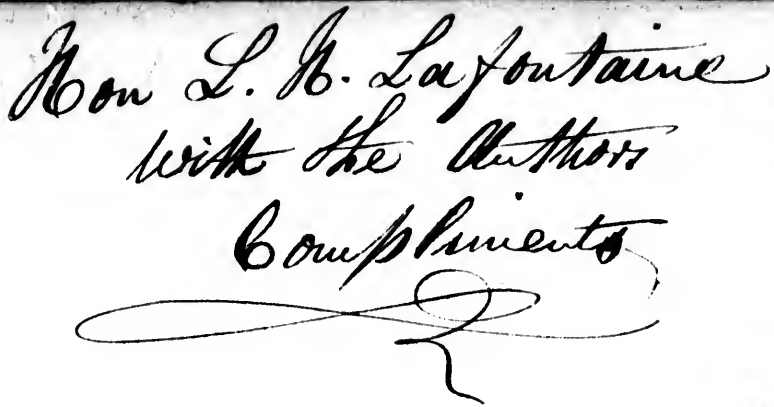 Hon L. H. Lafontaine
with the Authors
Compliments